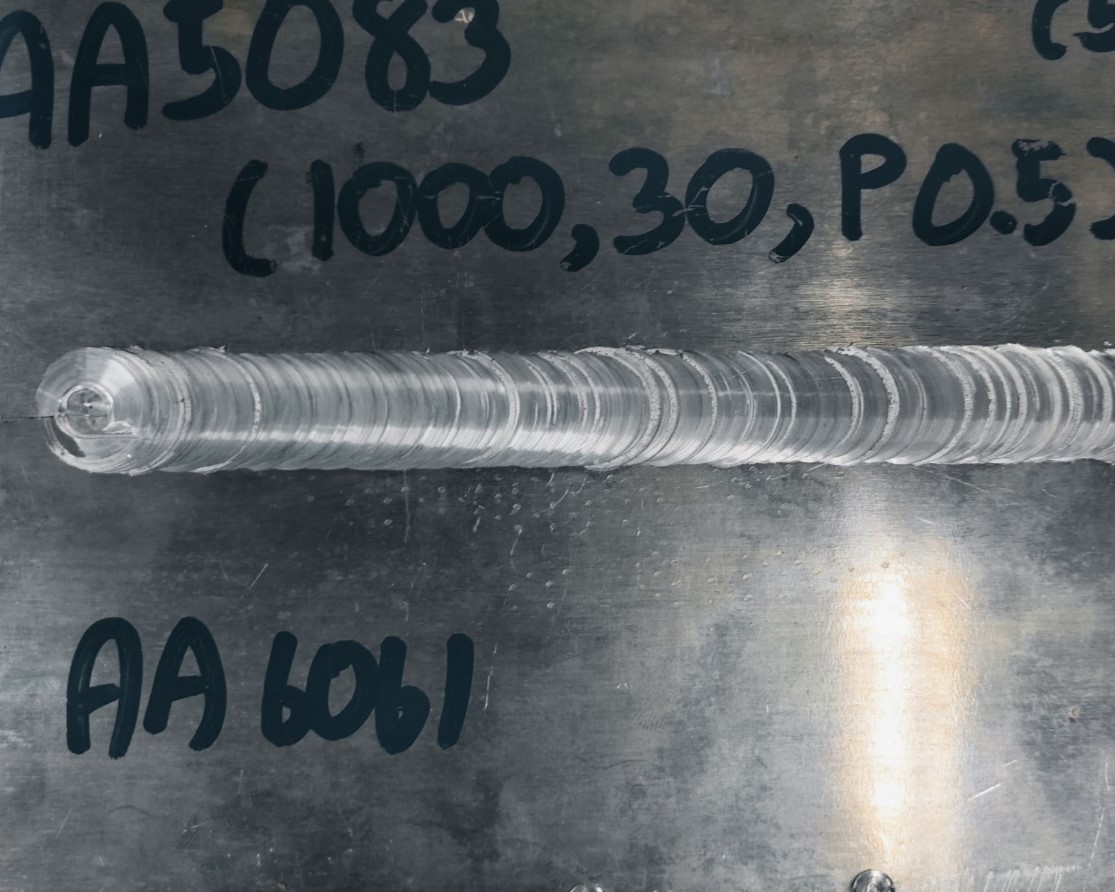 AA5083
(5
(1000,30,P0.5)
AA6061